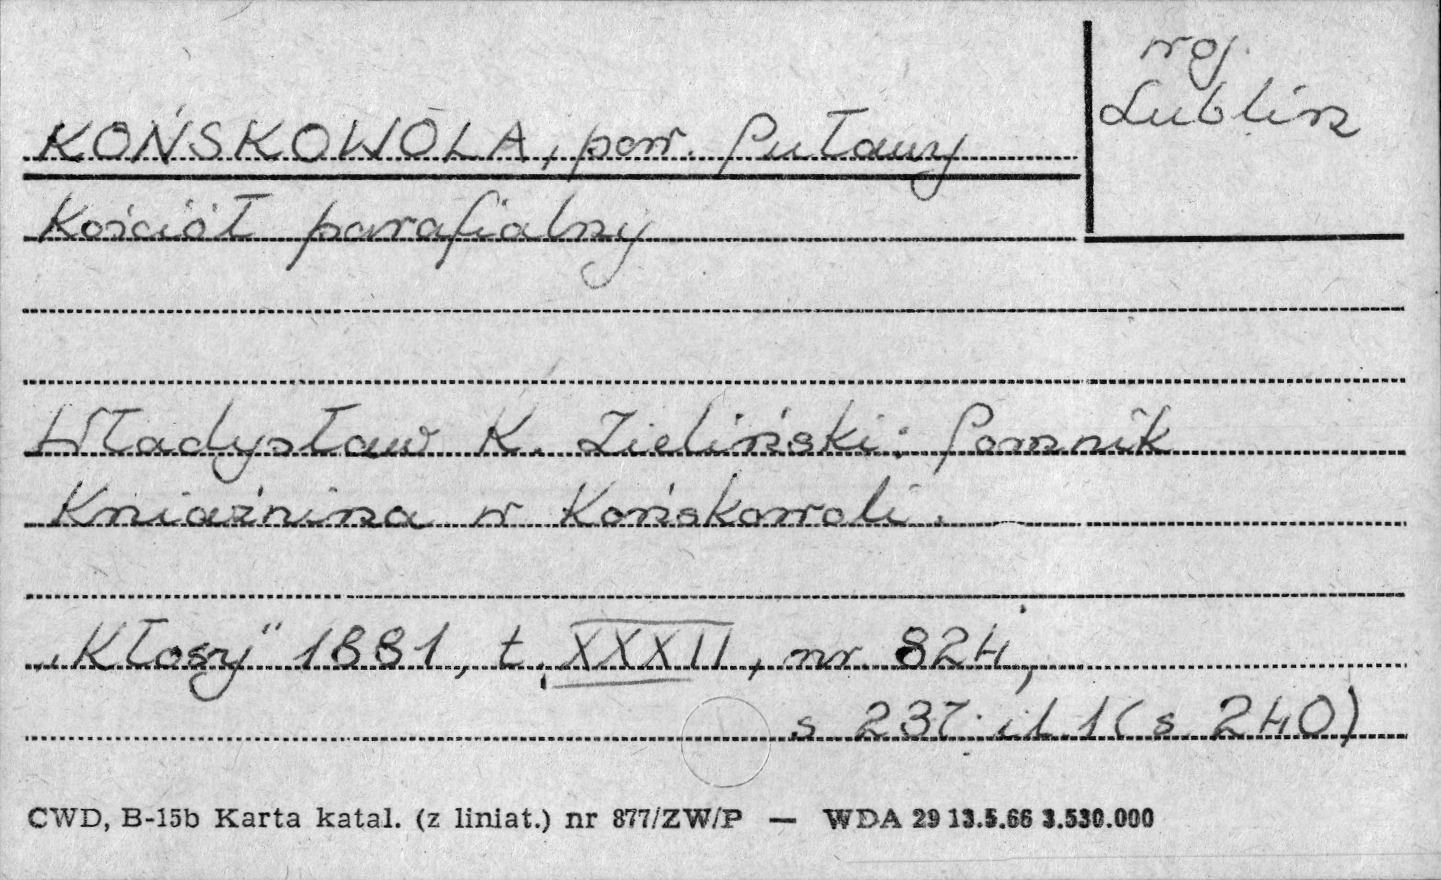 woj.
Lublin
KOŃSKOWOLA, pow. Puławy
Kościół parafialny
Władysław K. Zieliński: Pomnik
Kniaźnina w Końskowoli.
„Kłosy" 1881, t. XXXII, nr. 824,
s 237 il. 1 (s 240)
CWD, B-15b Karta katal. (z liniat.) nr 877/ZW/P — WDA 29 13.5.66 3.530.000